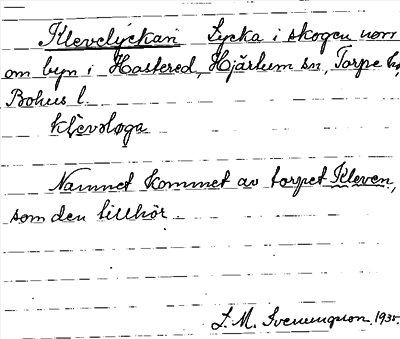 Klevelyckan Lycka i skogen norr
om byn i Hastered, Hjärtum sn, Torpe hd,
Bohus l.
Namnet kommet av torpet Kleven,
som den tillhör.
L. M. Svenungson. 1935.